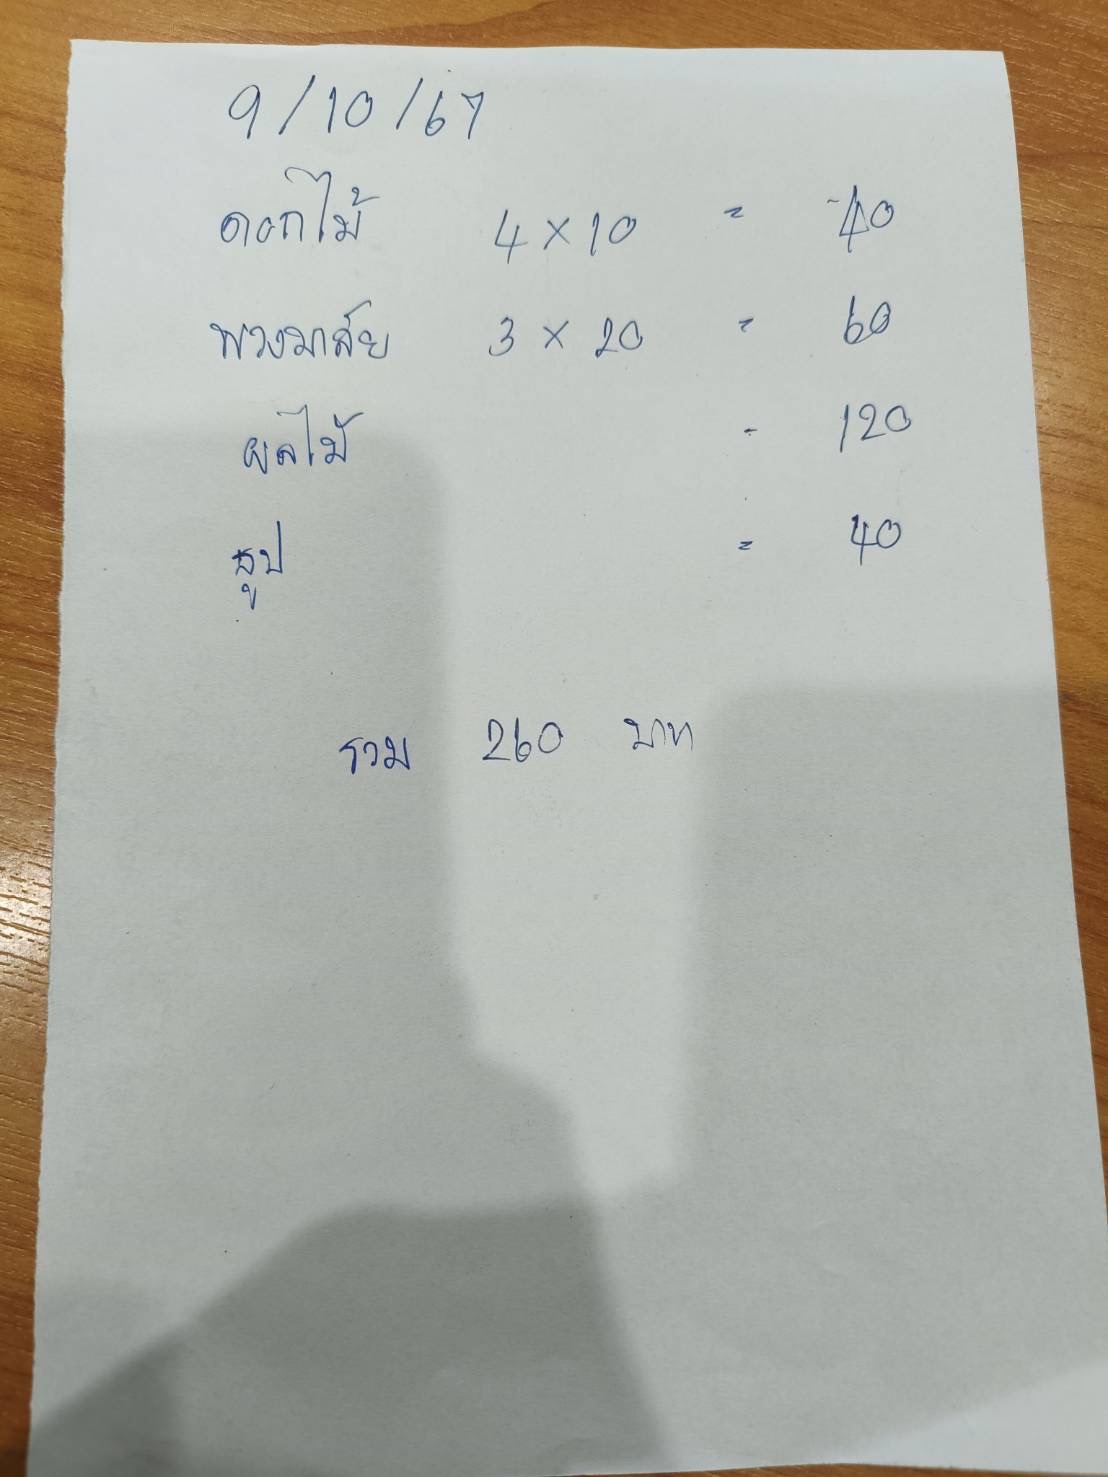 9/10/67
ดอกไม้ 4 × 10 = 40
พวงมาลัย 3 × 20 = 60
ผลไม้ - 120
ธูป = 40
รวม 260 บาท